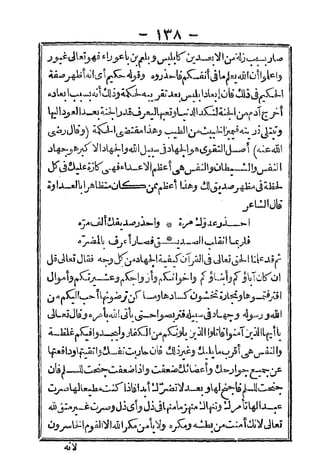 — ١٣٨ —
صار بسبب زلة من الابعدين كابليس وبلعم بن باعوراء فهو تعالى غيور
واعلموا أن الله يعلم ما فى أنفسكم فاحذروه وقوله حكيم أى انه أظهر صفة
الحكيم فى ذلك فان ابعاد ابليس بعد تقريبه حكمة وذلك أنه بسبب ابعاده
أخرج آدم من الجنة لنكد الدنيا وتعبها ليعرف قدر الجنة بعد العود اليها
وتبتلى ذريته فيميز الخبيث من الطيب وهذا مقتضى الحكمة (وقال رضى
الله عنه) أصل التقوى هو الجهاد فى سبيل الله والجهاد الاكبر هو جهاد
النفس والشيطان والنفس هى أعظم الاعداء فهى كارة عليك فى كل
لحظة فى مظهر صديق لك وهذا أعظم ممن كان متظاهرا بالعداوة
قال الشاعر
احذر عدوك مرة * واحذر صديقك ألف مره
فلربما انقلب الصديـ ـق فصار أعرف بالمضره
ثم قد علمنا الحق تعالى فى القرآن كيفية الجهاد من كل وجه فقال تعالى قل
ان كان آباؤكم وأبناؤكم واخوانكم وأزواجكم وعشيرتكم وأموال
اقترفتموها وتجارة تخشون كسادها ومساكن ترضونها أحب اليكم من
الله ورسوله وجهاد فى سبيله فتربصوا حتى يأتى الله بأمره وقال تعالى
يا أيها الذين آمنوا قاتلوا الذين يلونكم من الكفار وليجدوا فيكم غلظة
والنفس هى أقرب ما يليك وغير ذلك فان حاربت نفسك واتقيتها ودافعتها
عن جميع جوارحك وأعضائك ضعفت واذا ضعفت جنحت للسلم فان
جنحت للسلم فاجنح لها وبعد لا تضرك أبدا فاذا كنت مطيعا لها صرت
عبدا لها تأمرك وتنهاك منهزما منها فى ذل وأى ذل وصرت غير متق لله
تعالى لانك أمنت من بطشه ومكره ولا يأمن مكر الله الا القوم الخاسرون
لانه